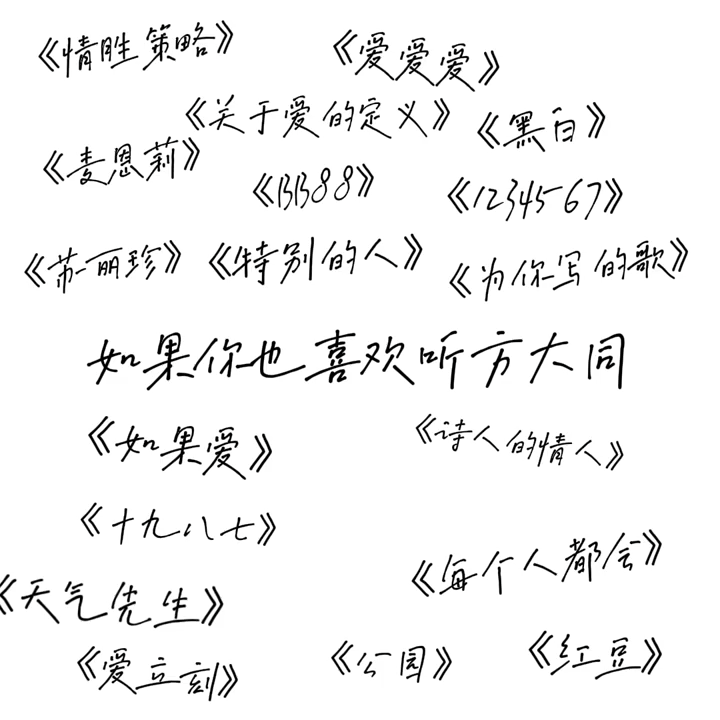 《情胜策略》
《爱爱爱》
《关于爱的定义》
《黑白》
《麦恩莉》
《BB88》
《1234567》
《苏丽珍》
《特别的人》
《为你写的歌》
如果你也喜欢听方大同
《如果爱》
《诗人的情人》
《十九八七》
《每个人都会》
《天气先生》
《爱立刻》
《公园》
《红豆》